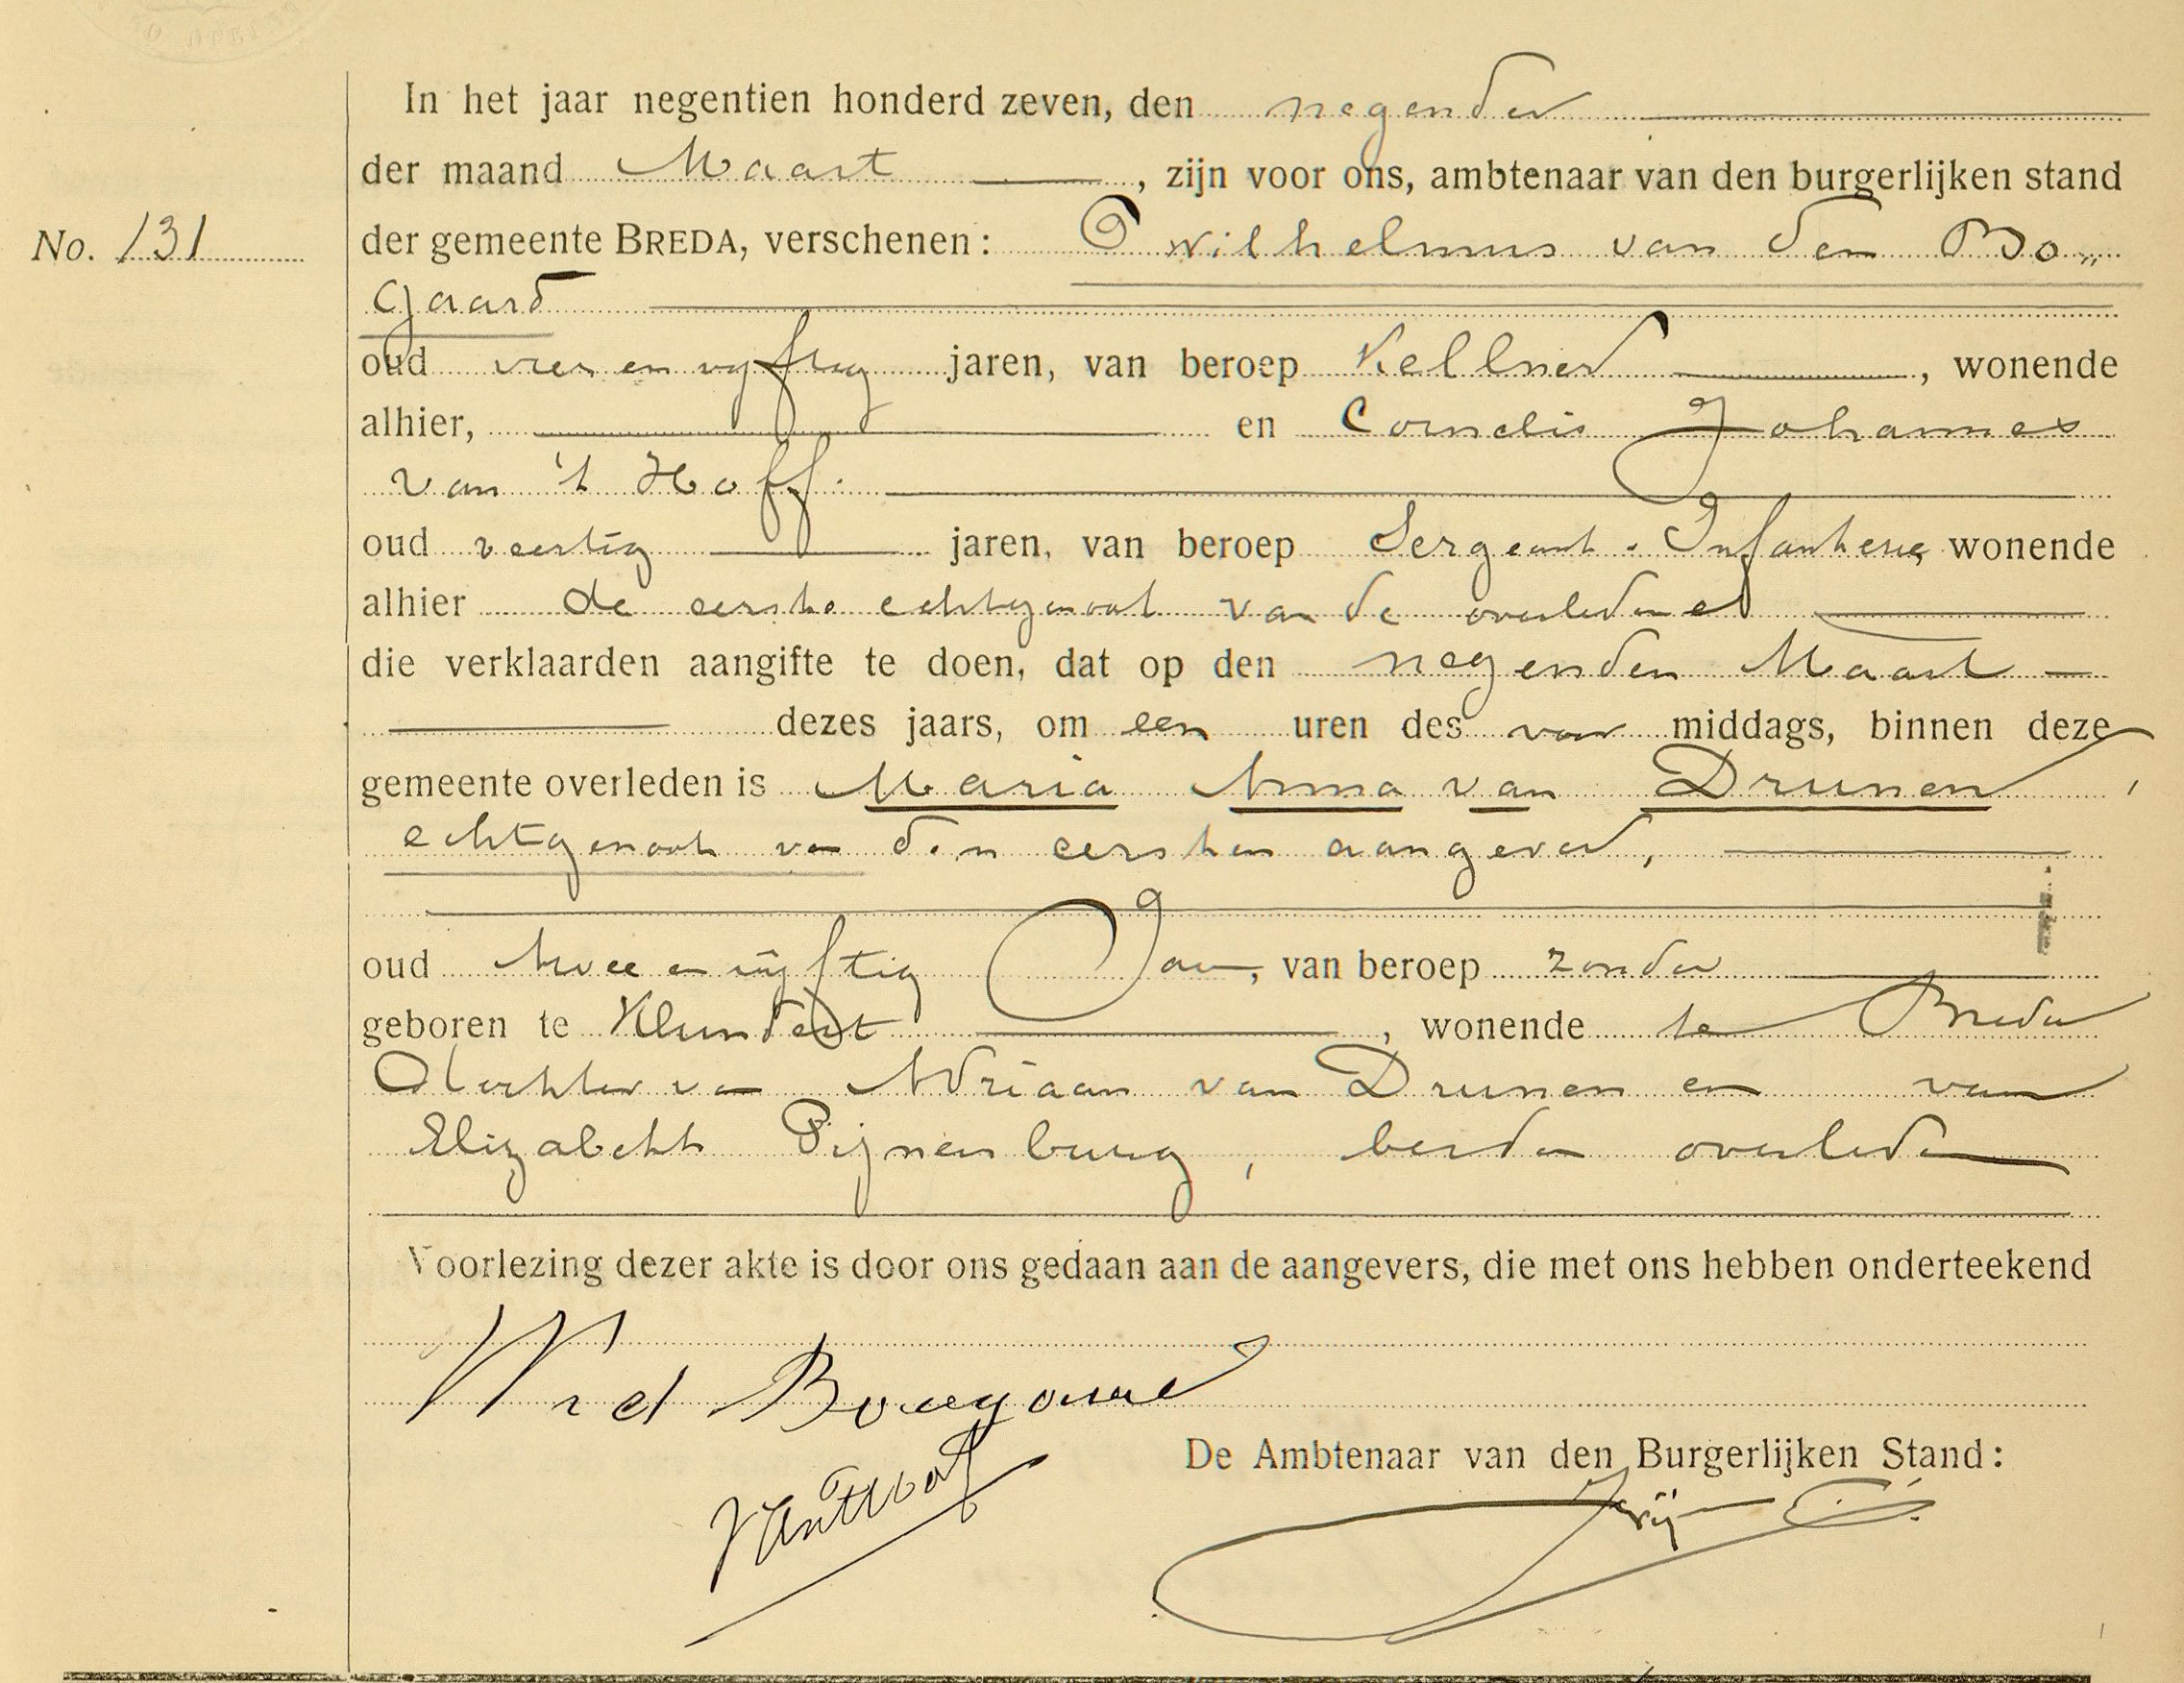 In het jaar negentien honderd zeven, den negenden
der maand Maart, zijn voor ons, ambtenaar van den burgerlijken stand
No. 131
der gemeente BREDA, verschenen: Wilhelmus van den Bo„
gaard
oud vier en vyftig jaren, van beroep Kellner, wonende
alhier, en Cornelis Johannes
van 't Hoff.
oud veertig jaren, van beroep Sergeant-Infanterie, wonende
alhier de eerste echtgenoot van de overledene
die verklaarden aangifte te doen, dat op den negenden Maart
dezes jaars, om een uren des voor middags, binnen deze
gemeente overleden is Maria Anna van Drunen,
echtgenoot van den eersten aangever,
oud twee en vijftig Jaar, van beroep zonder
geboren te Klundert, wonende te Breda
dochter van Adriaan van Drunen en van
Elizabeth Pijnenburg, beiden overleden
Voorlezing dezer akte is door ons gedaan aan de aangevers, die met ons hebben onderteekend
W v d
De Ambtenaar van den Burgerlijken Stand: